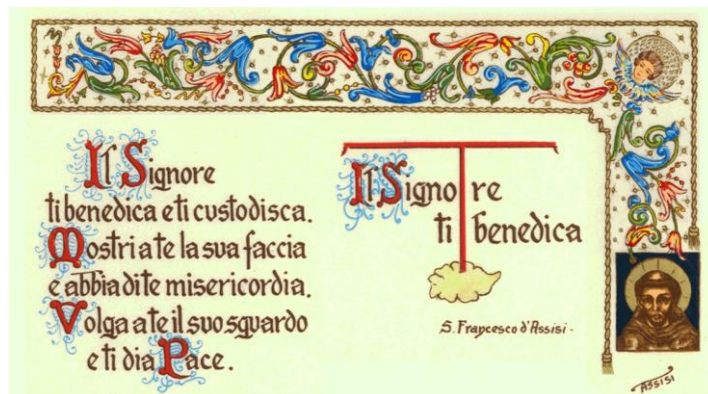 Il Signore
ti benedica e ti custodisca.
Mostri a te la sua faccia
e abbia di te misericordia.
Volga a te il suo sguardo
e ti dia Pace.
Il Signore
ti benedica
S. Francesco d'Assisi.
ASSISI